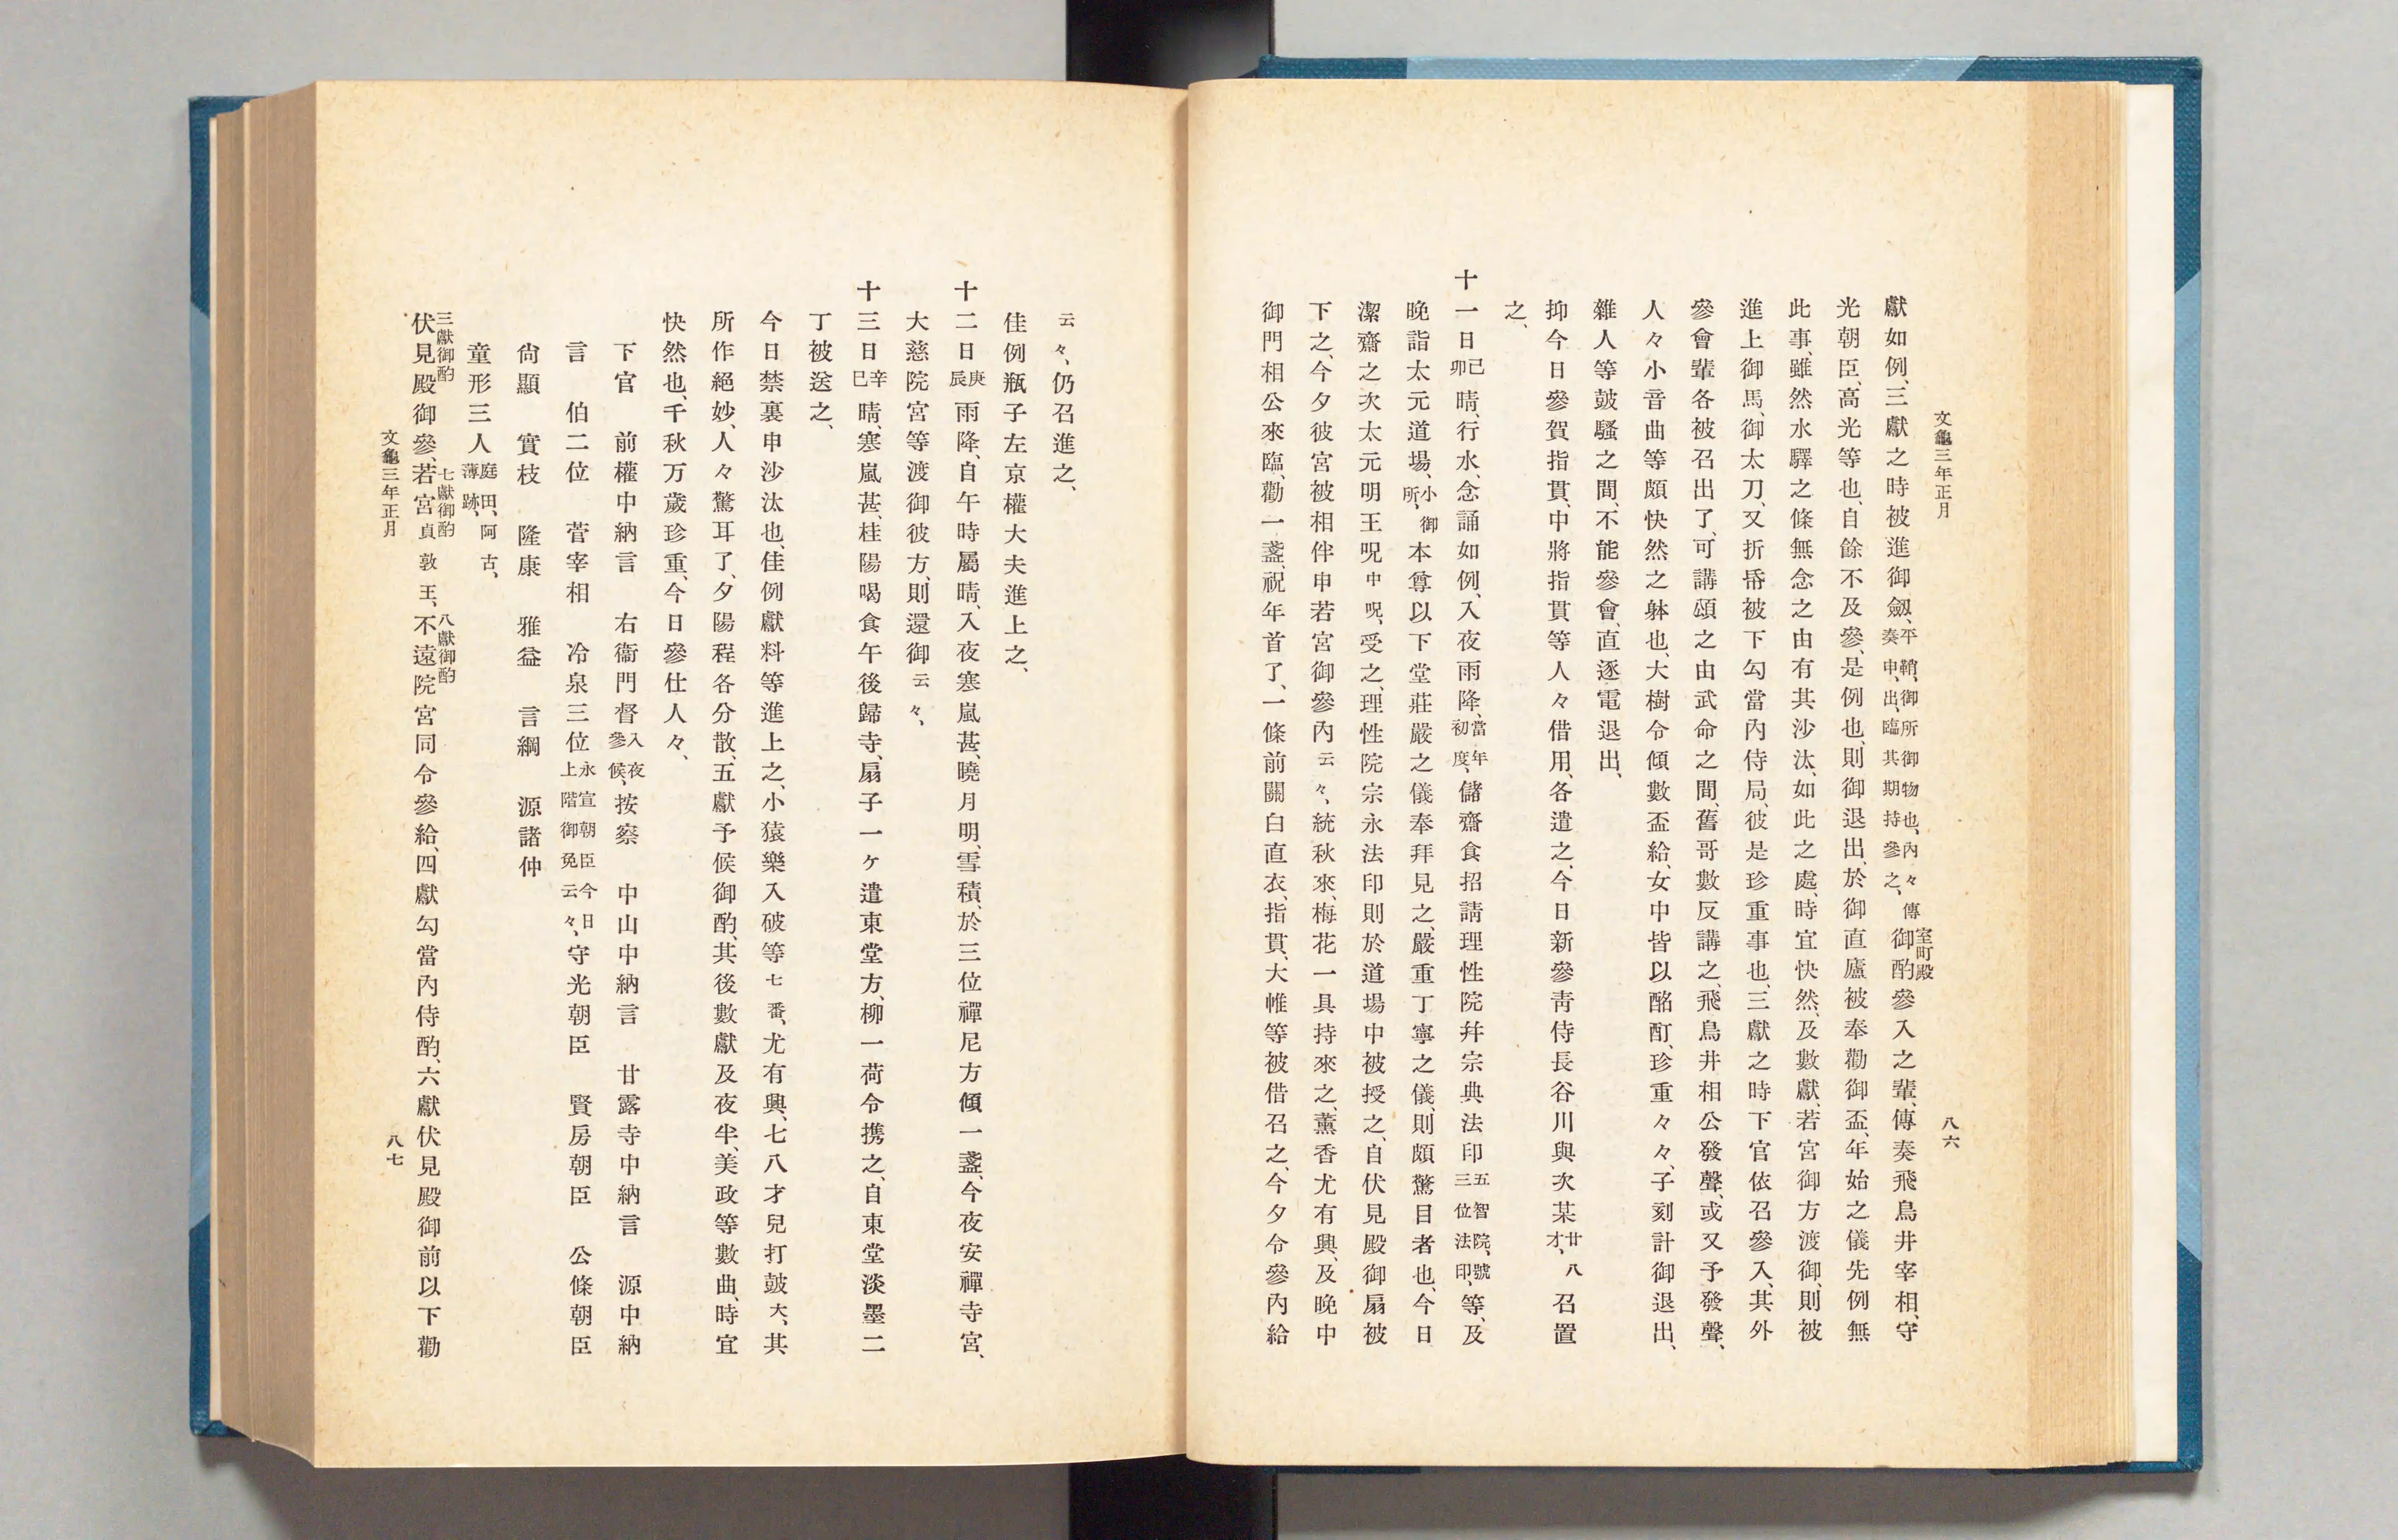 文龜三年正月
八六
獻如例、三獻之時被進御劔、平鞘、御所御物也、內々傳奏申出、臨其期持參之、御酌室町殿參入之輩、傳奏飛鳥井宰相、守
光朝臣、高光等也、自餘不及參、是例也、則御退出、於御直廬被奉勸御盃、年始之儀先例無
此事、雖然水驛之條無念之由有其沙汰、如此之處、時宜快然、及數獻、若宮御方渡御、則被
進上御馬、御太刀、又折帋被下勾當內侍局、彼是珍重事也、三獻之時下官依召參入、其外
參會輩各被召出了、可講頌之由武命之間、舊哥數反講之、飛鳥井相公發聲、或又予發聲、
人々小音曲等頗快然之躰也、大樹令傾數盃給、女中皆以酩酊、珍重々々、子刻計御退出、
雜人等鼓騷之間、不能參會、直逐電退出、
抑今日參賀指貫、中將指貫等人々借用、各遣之、今日新參靑侍長谷川與次某廿八才、召置
之、
十一日己卯晴、行水、念誦如例、入夜雨降、當年初度、儲齋食招請理性院幷宗典法印五智院、號三位法印、等、及
晚詣太元道場、小御所、本尊以下堂莊嚴之儀奉拜見之、嚴重丁寧之儀、則頗驚目者也、今日
潔齋之次太元明王呪中呪、受之、理性院宗永法印則於道場中被授之、自伏見殿御扇被
下之、今夕彼宮被相伴申若宮御參內云々、統秋來、梅花一具持來之、薰香尤有興、及晚中
御門相公來臨、勸一盞、祝年首了、一條前關白直衣、指貫、大帷等被借召之、今夕令參內給
云々、仍召進之、
佳例瓶子左京權大夫進上之、
十二日庚辰雨降、自午時屬晴、入夜寒嵐甚、曉月明、雪積、於三位禪尼方傾一盞、今夜安禪寺宮、
大慈院宮等渡御彼方、則還御云々、
十三日辛巳晴、寒嵐甚、桂陽喝食午後歸寺、扇子一ヶ遣東堂方、柳一荷令携之、自東堂淡墨二
丁被送之、
今日禁裏申沙汰也、佳例獻料等進上之、小猿樂入破等七番、尤有興、七八才兒打鼓大、其
所作絕妙、人々驚耳了、夕陽程各分散、五獻予候御酌、其後數獻及夜半、美政等數曲、時宜
快然也、千秋万歲珍重、今日參仕人々、
下官　前權中納言　右衞門督入夜參候、按察　中山中納言　甘露寺中納言　源中納
言　伯二位　菅宰相　冷泉三位永宣朝臣今日上階御免云々、守光朝臣　賢房朝臣　公條朝臣
尙顯　實枝　隆康　雅益　言綱　源諸仲
童形三人庭田、阿古、薄跡、
三獻御酌　七獻御酌　八獻御酌
伏見殿御參、若宮貞敦王、不遠院宮同令參給、四獻勾當內侍酌、六獻伏見殿御前以下勸
文龜三年正月
八七